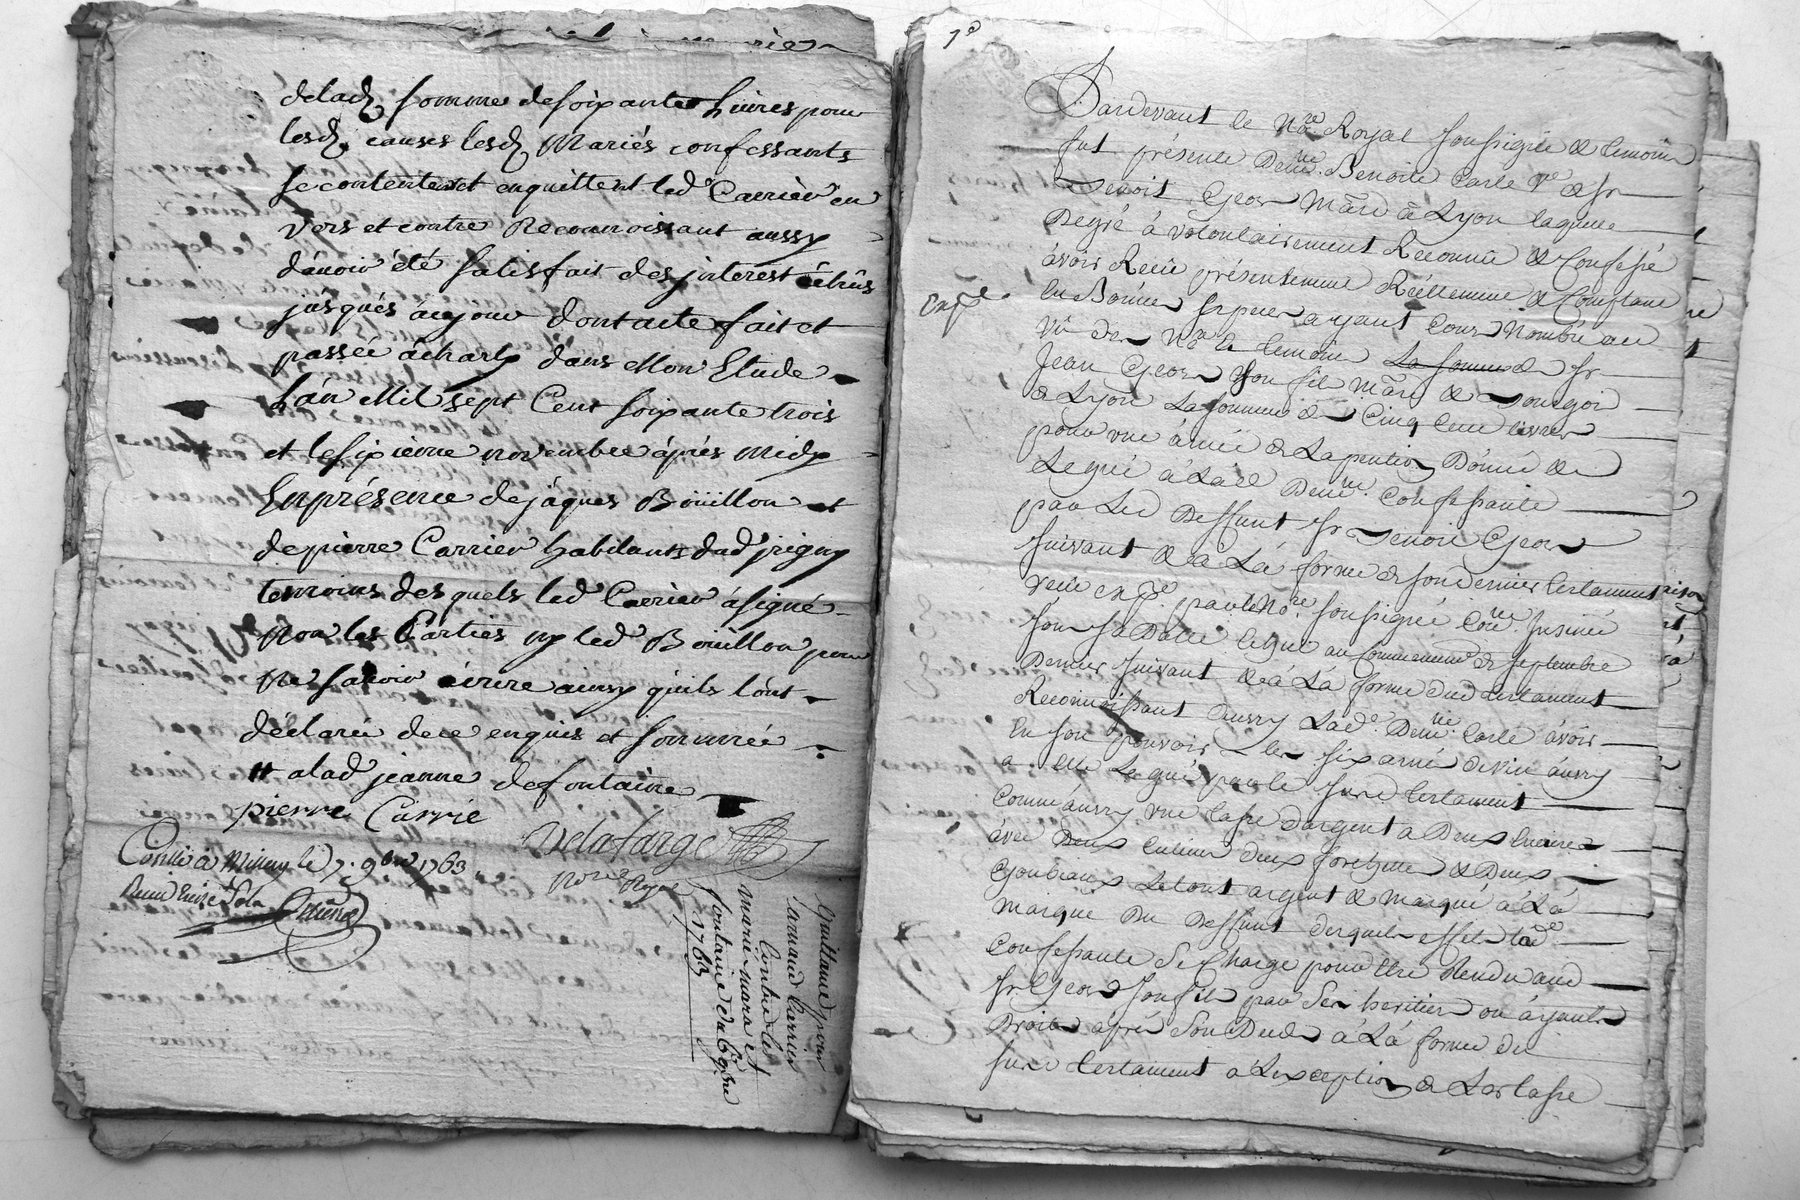 delad. somme de soixante Livres pour
lesd. causes lesd. Mariés confessants
se contentent enquittent led. Carrier en
vers et contre Reconnoissant aussy
d'avoir été satisfait des jnterest échûs
jusqués àujour dont acte fait et
passée à charly dans Mon Etude
L'àn Mil sept Cent soixante trois
et le sixieme novembre àprés midy
En présence de jàques Boüillon et
de pierre Carrier habitants dud jrigny
temoins des quels led Carrier à signé
non les Parties ny led Boüillon pour
ne savoir écrire ainsy qu'ils l'ont
déclarée de ce enquis et sommée
# alad jeanne defontaine
pierre Carrié
Delafarge
No.re Royal
Conllé à Millery le 7. 9bre 1763
Reçu treize sols
Quittance pour
armand Carrier
Contre les
marie mara et
fontaine du 6 9bre
1763
7e
Pardevant le Nore. Royal soussigné & temoin
fut présente Delle. Benoite Carle Vve de sr
Benoit Geor Mând à Lyon laquelle
Degré à volontairement Reconnu & Confessé
àvoir Reçu présentement Réellement & Comptant
En Bonnes Especes ayant Cours & Nombré au
expe.
Vû des Nre & temoin La somme de sr
Jean Geor son fils Mând & Bourgois
de Lyon La somme de Cinq Cent livres
pour une année de La pention Donné &
Legué à Lad Delle. Confessante
par Led Deffunt sr Benoit Geor
suivant & à Lá forme de son dernier testament
Reçu en pe. par le Nore. soussigné Conlle. Insinué
sous sa Datte Echue au Commencement de septembre
Dernier suivant & á Lá forme dud testament
Reconnoissant Aussy Lade. Delle. Carle àvoir
En son pouvoir les six àmé de vin àussy
à Elle Legué par le susd testament
Comme àussy une tasse d'argent a Deux
àvec Deux Cuilier deux forchette & Deux
Gonbeaux Le tout argent & marqué à Lá
marque Du Deffunt desquels effets lade
Confessante Se Charge pour Etre Rendu aud
sr Geor son fils par Ses heritier ou áyants
Droits áprés Son Deced à Lá forme du
susd testament à L'exception de Las tasse